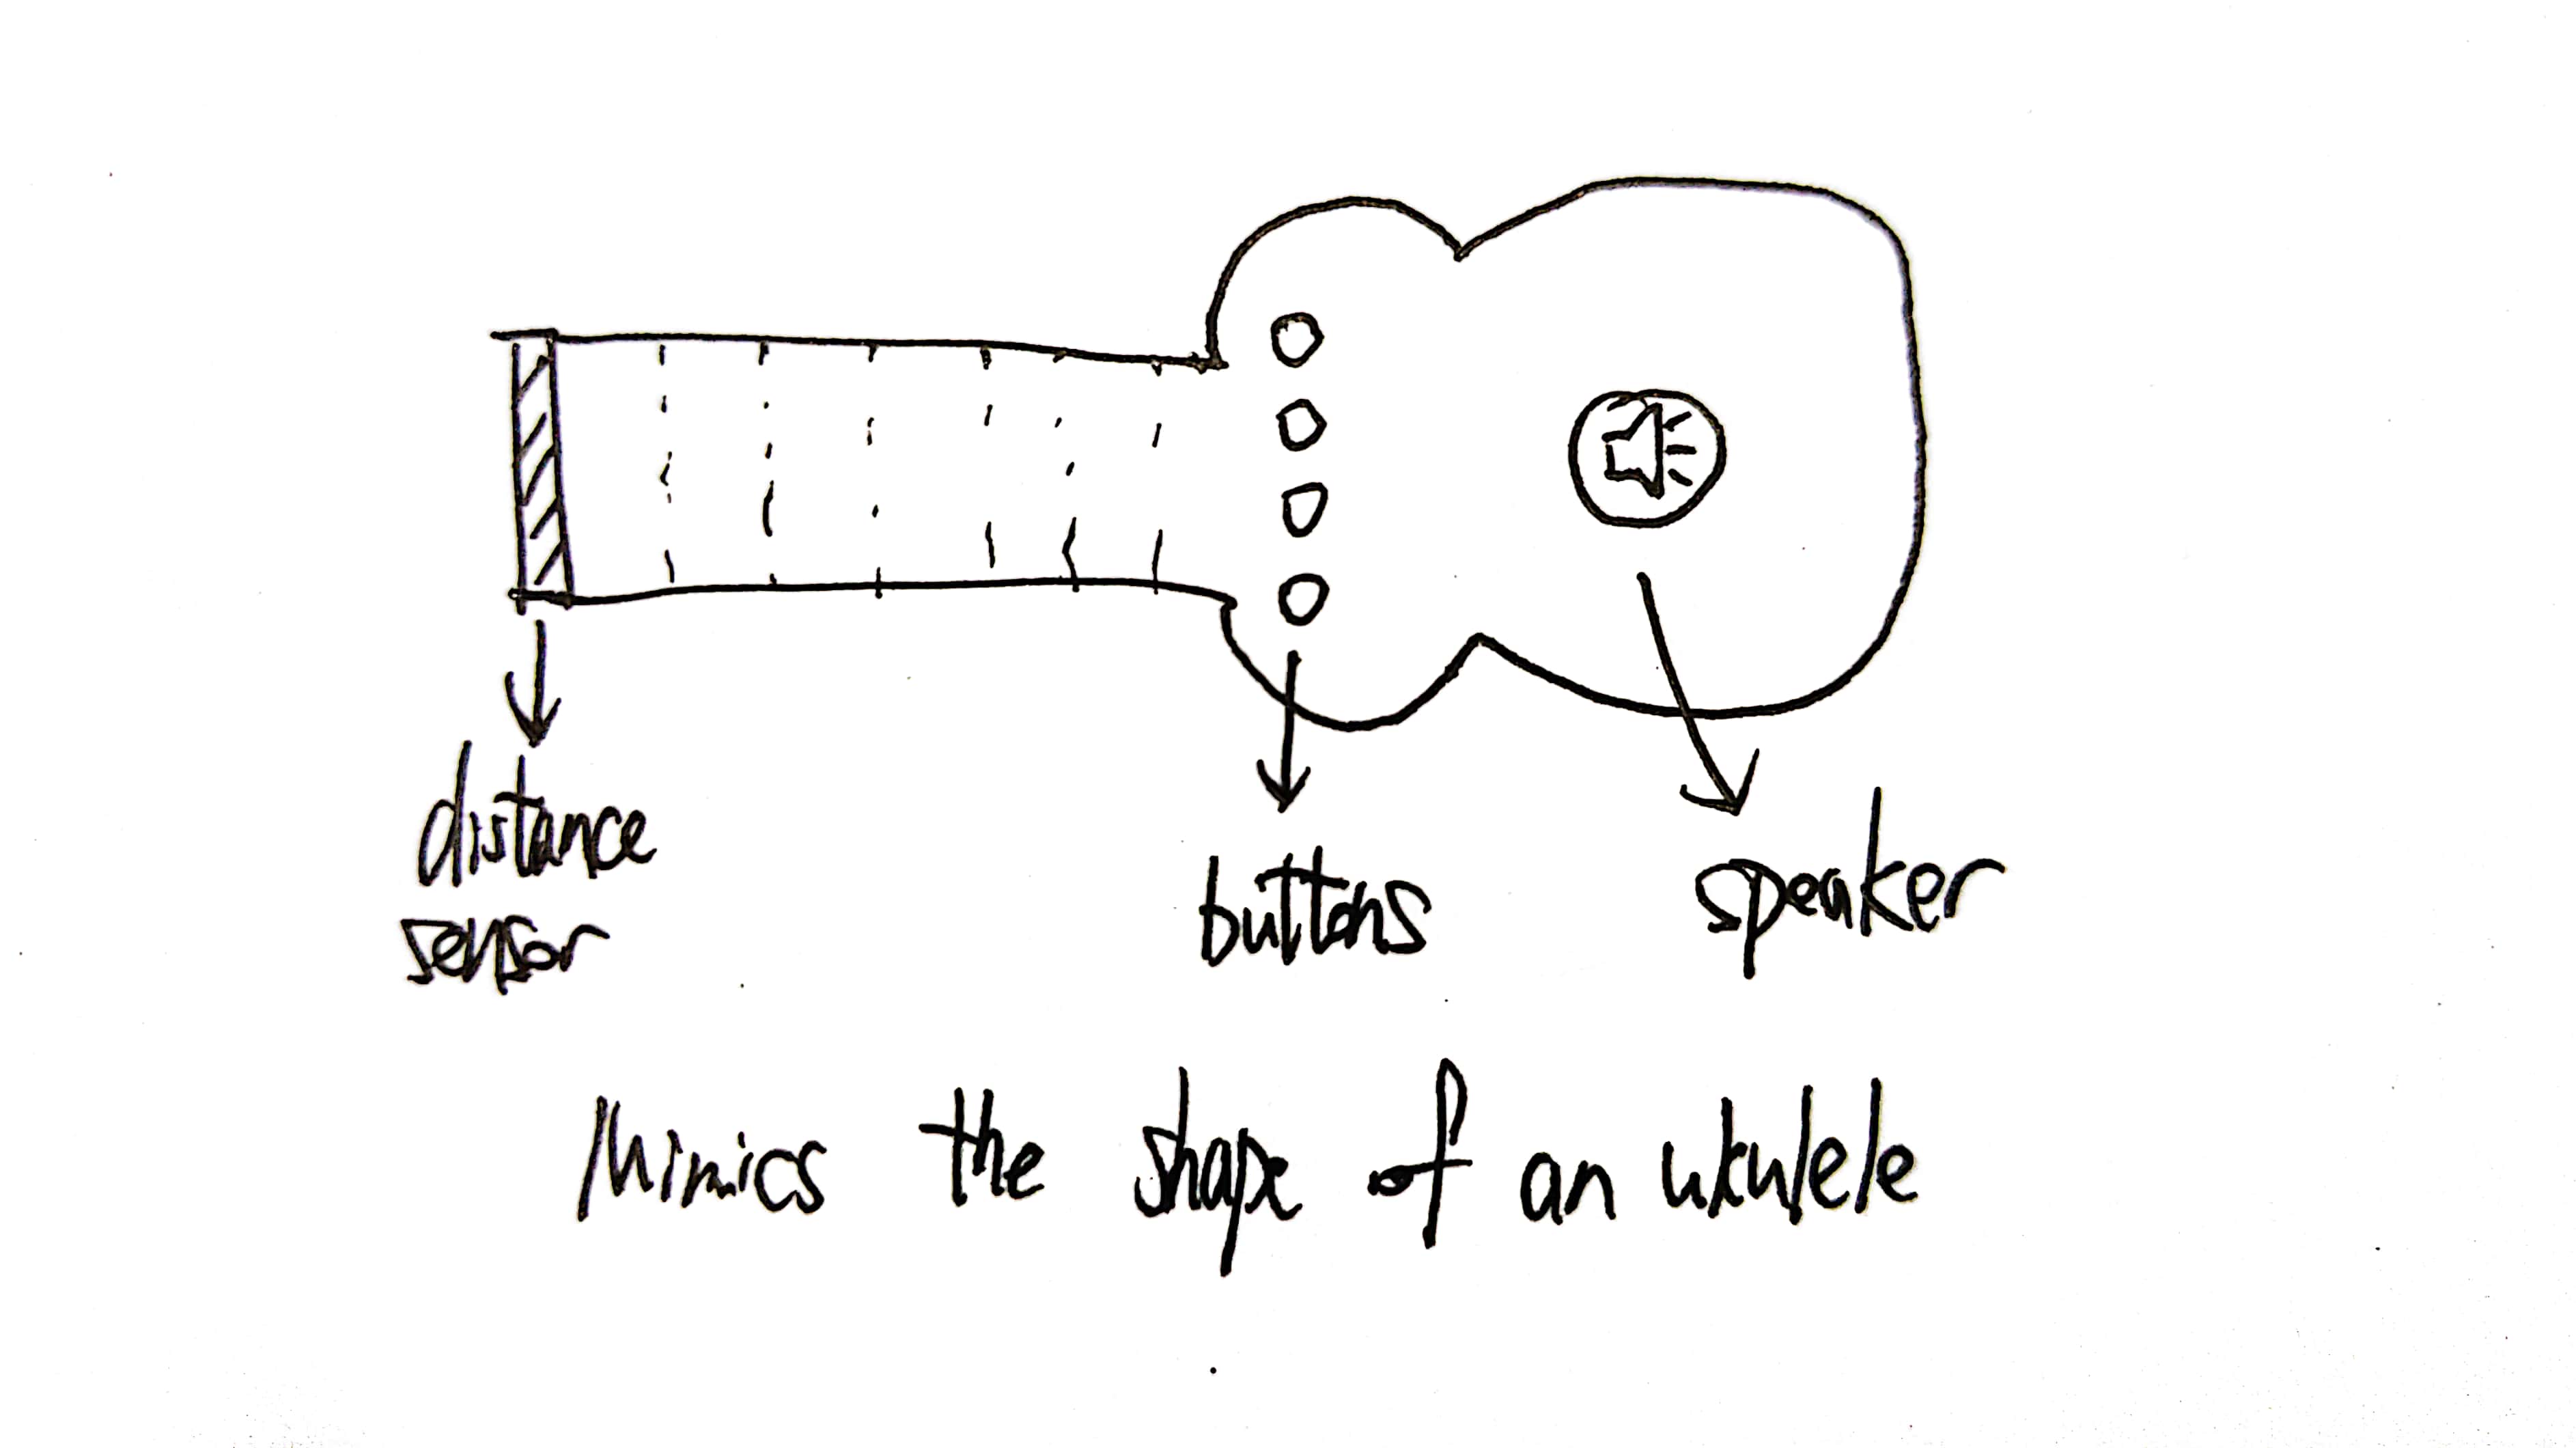 distance
sensor
buttons
speaker
Mimics the shape of an ukulele